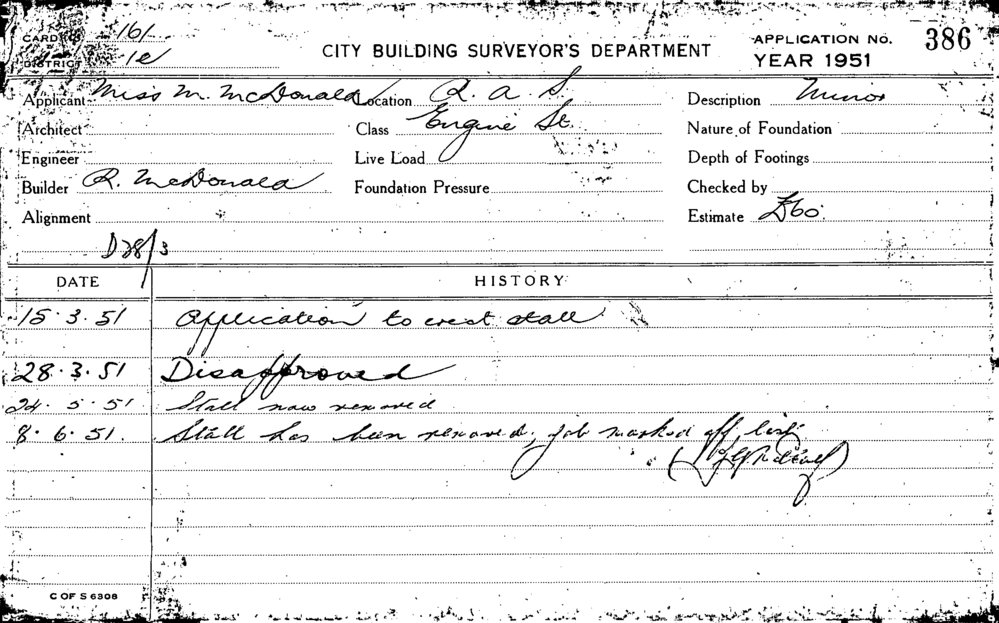 CARD No. 161
DISTRICT 1e
CITY BUILDING SURVEYOR'S DEPARTMENT
APPLICATION No. 386
YEAR 1951
Applicant Miss M. McDonald Location R. A. S. Description Minor
Architect Class Engine St Nature of Foundation
Engineer Live Load Depth of Footings
Builder R. McDonald Foundation Pressure Checked by
Alignment Estimate £60.
D28/3
DATE HISTORY
15.3.51 Application to erect stall
28.3.51 Disapproved
24.5.51 Stall now removed
8.6.51. Stall has been removed, job marked off list
C OF S 6308